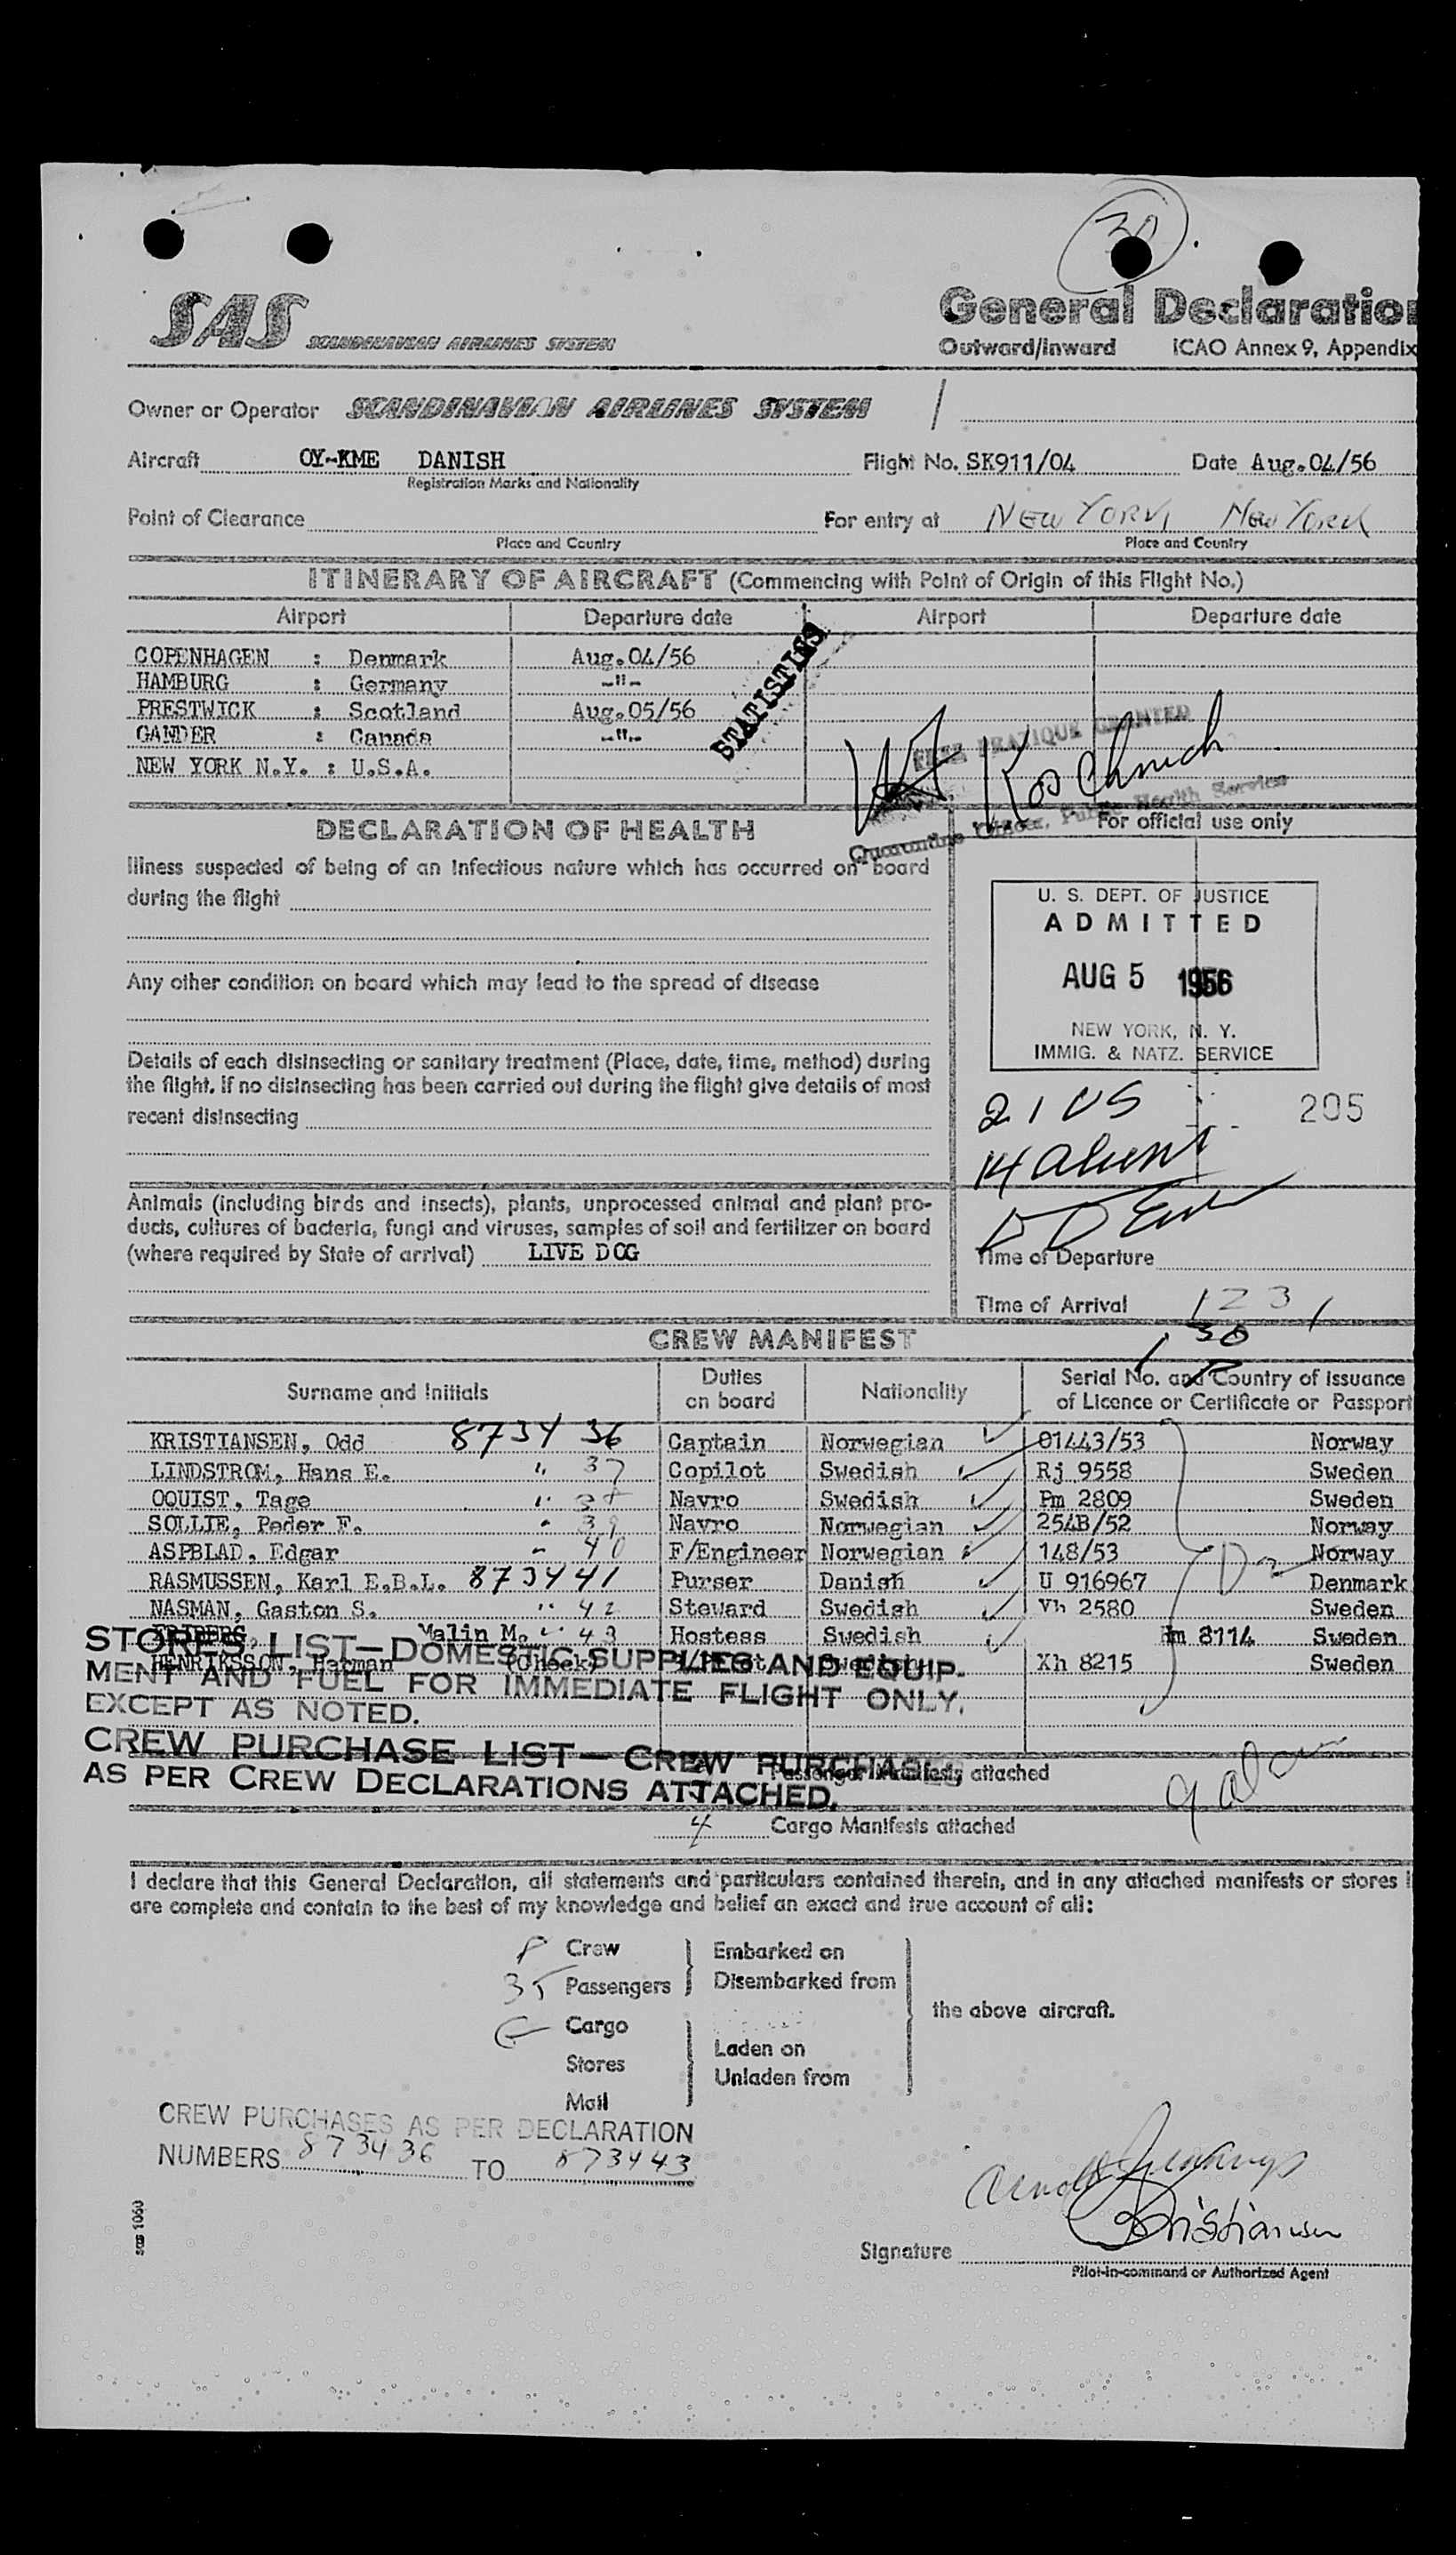 SAS SCANDINAVIAN AIRLINES SYSTEM
General Declaration
Outward/Inward ICAO Annex 9, Appendix
Owner or Operator SCANDINAVIAN AIRLINES SYSTEM
Aircraft OY-KME DANISH Flight No. SK911/04 Date Aug.04/56
Registration Marks and Nationality
Point of Clearance For entry at NEW YORK NEW YORK
Place and Country Place and Country
ITINERARY OF AIRCRAFT (Commencing with Point of Origin of this Flight No.)
Airport Departure date Airport Departure date
COPENHAGEN : Denmark Aug.04/56
HAMBURG : Germany -"-
PRESTWICK : Scotland Aug.05/56
GANDER : Canada -"-
NEW YORK N.Y. : U.S.A.
STATISTICS
FREE PRATIQUE GRANTED
Quarantine Officer, Public Health Service
DECLARATION OF HEALTH
For official use only
Illness suspected of being of an infectious nature which has occurred on board
during the flight
Any other condition on board which may lead to the spread of disease
Details of each disinsecting or sanitary treatment (Place, date, time, method) during
the flight. If no disinsecting has been carried out during the flight give details of most
recent disinsecting
U. S. DEPT. OF JUSTICE
ADMITTED
AUG 5 1956
NEW YORK, N. Y.
IMMIG. & NATZ. SERVICE
21 US
205
14 aliens
Animals (including birds and insects), plants, unprocessed animal and plant pro-
ducts, cultures of bacteria, fungi and viruses, samples of soil and fertilizer on board
(where required by State of arrival) LIVE DOG
Time of Departure
Time of Arrival 1231
CREW MANIFEST
Surname and Initials Duties on board Nationality Serial No. and Country of issuance of Licence or Certificate or Passport
KRISTIANSEN, Odd 873436 Captain Norwegian 01443/53 Norway
LINDSTROM, Hans E. " 37 Copilot Swedish Rj 9558 Sweden
OQUIST, Tage " 38 Navro Swedish Pm 2809 Sweden
SOLLIE, Peder F. " 39 Navro Norwegian 254B/52 Norway
ASPBLAD, Edgar " 40 F/Engineer Norwegian 148/53 Norway
RASMUSSEN, Karl E.B.L. 873441 Purser Danish U 916967 Denmark
NASMAN, Gaston S. " 42 Steward Swedish Vh 2580 Sweden
Malin M. " 43 Hostess Swedish 8114 Sweden
HENRIKSSON, Herman (Check) Swedish Xh 8215 Sweden
STORES LIST—DOMESTIC SUPPLIES AND EQUIP-
MENT AND FUEL FOR IMMEDIATE FLIGHT ONLY,
EXCEPT AS NOTED.
CREW PURCHASE LIST—CREW PURCHASES
AS PER CREW DECLARATIONS ATTACHED.
Passenger Manifests attached
4 Cargo Manifests attached
I declare that this General Declaration, all statements and particulars contained therein, and in any attached manifests or stores
are complete and contain to the best of my knowledge and belief an exact and true account of all:
Crew
35 Passengers
Cargo
Stores
Mail
Embarked on
Disembarked from
Laden on
Unladen from
the above aircraft.
CREW PURCHASES AS PER DECLARATION
NUMBERS 873436 TO 873443
sas 1060
Kristiansen
Signature
Pilot-in-command or Authorized Agent